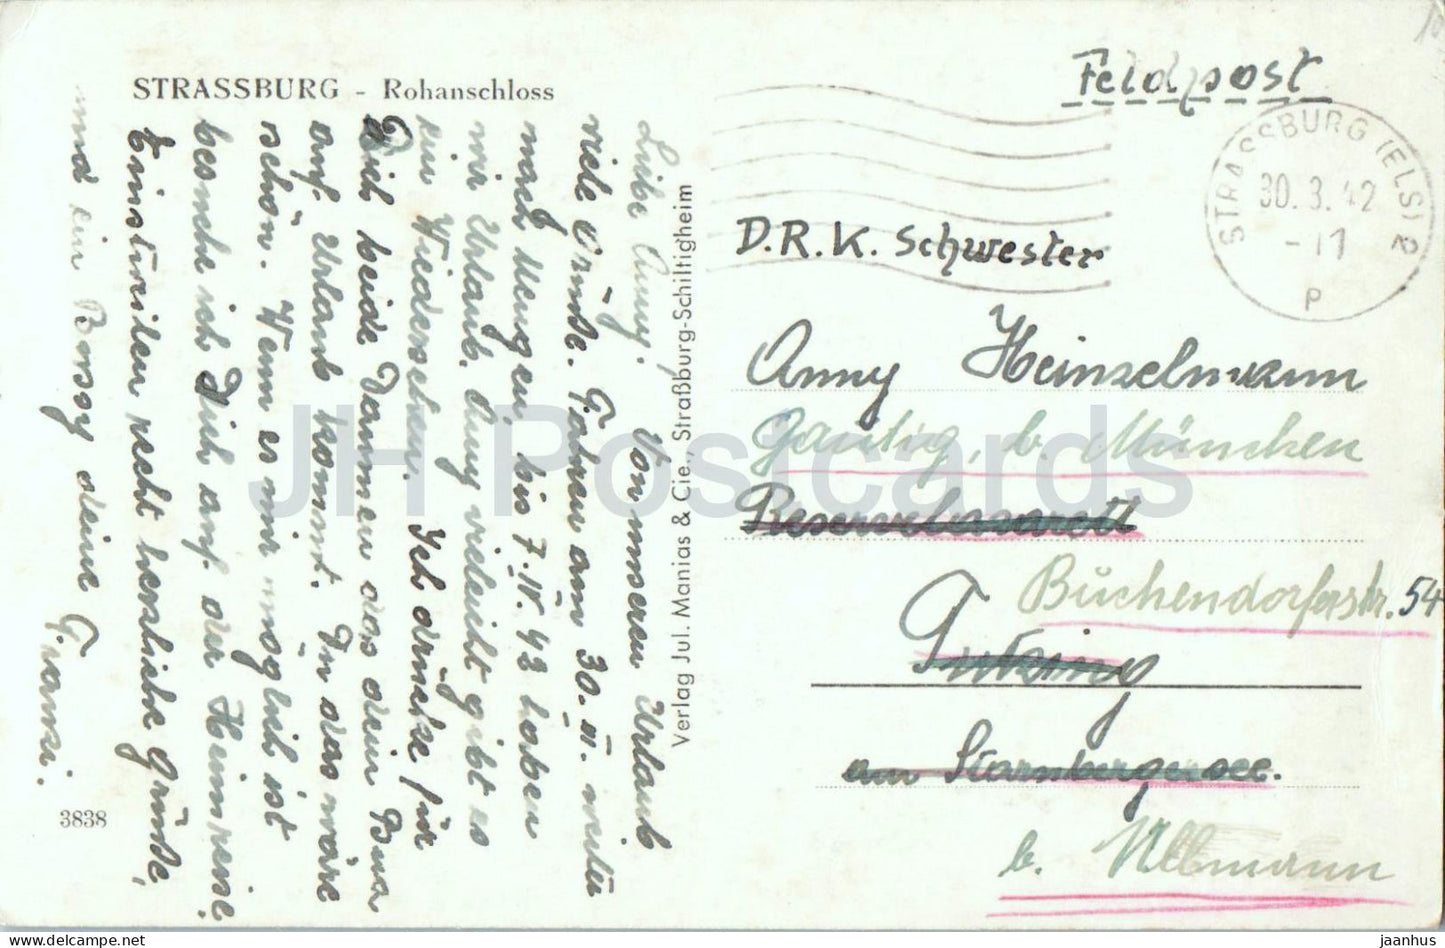 STRASSBURG - Rohanschloss
Liebe Anny. Von unseren Urlaub
viele Grüße. Fahren am 30. III. weiter
nach Mengen, bis 7. IV. 42 haben
wir Urlaub. Anny vieleicht gibt es
ein Wiedersehen. Ich drücke für
Dich beide Daumen das dein Bua
auf Urlaub kommt. Du das wäre
schön. Wenn es mir möglich ist
besuche ich Dich auf der Heimreise.
Einstweilen recht herzliche Grüße,
und ein Bussy deine Franzi.
3838
Verlag Jul. Manias & Cie., Straßburg-Schiltigheim
Feldpost
STRASSBURG (ELS) 2
30.3.42
-17
P
D.R.K. Schwester
Anny Heinzelmann
Gauting, b. München
Reservelazarett
Buchendorferstr. 54
Tutzing
am Starnbergersee.
b. Ullmann
JH Postcards
jaanhus - https://jhpostcards.com